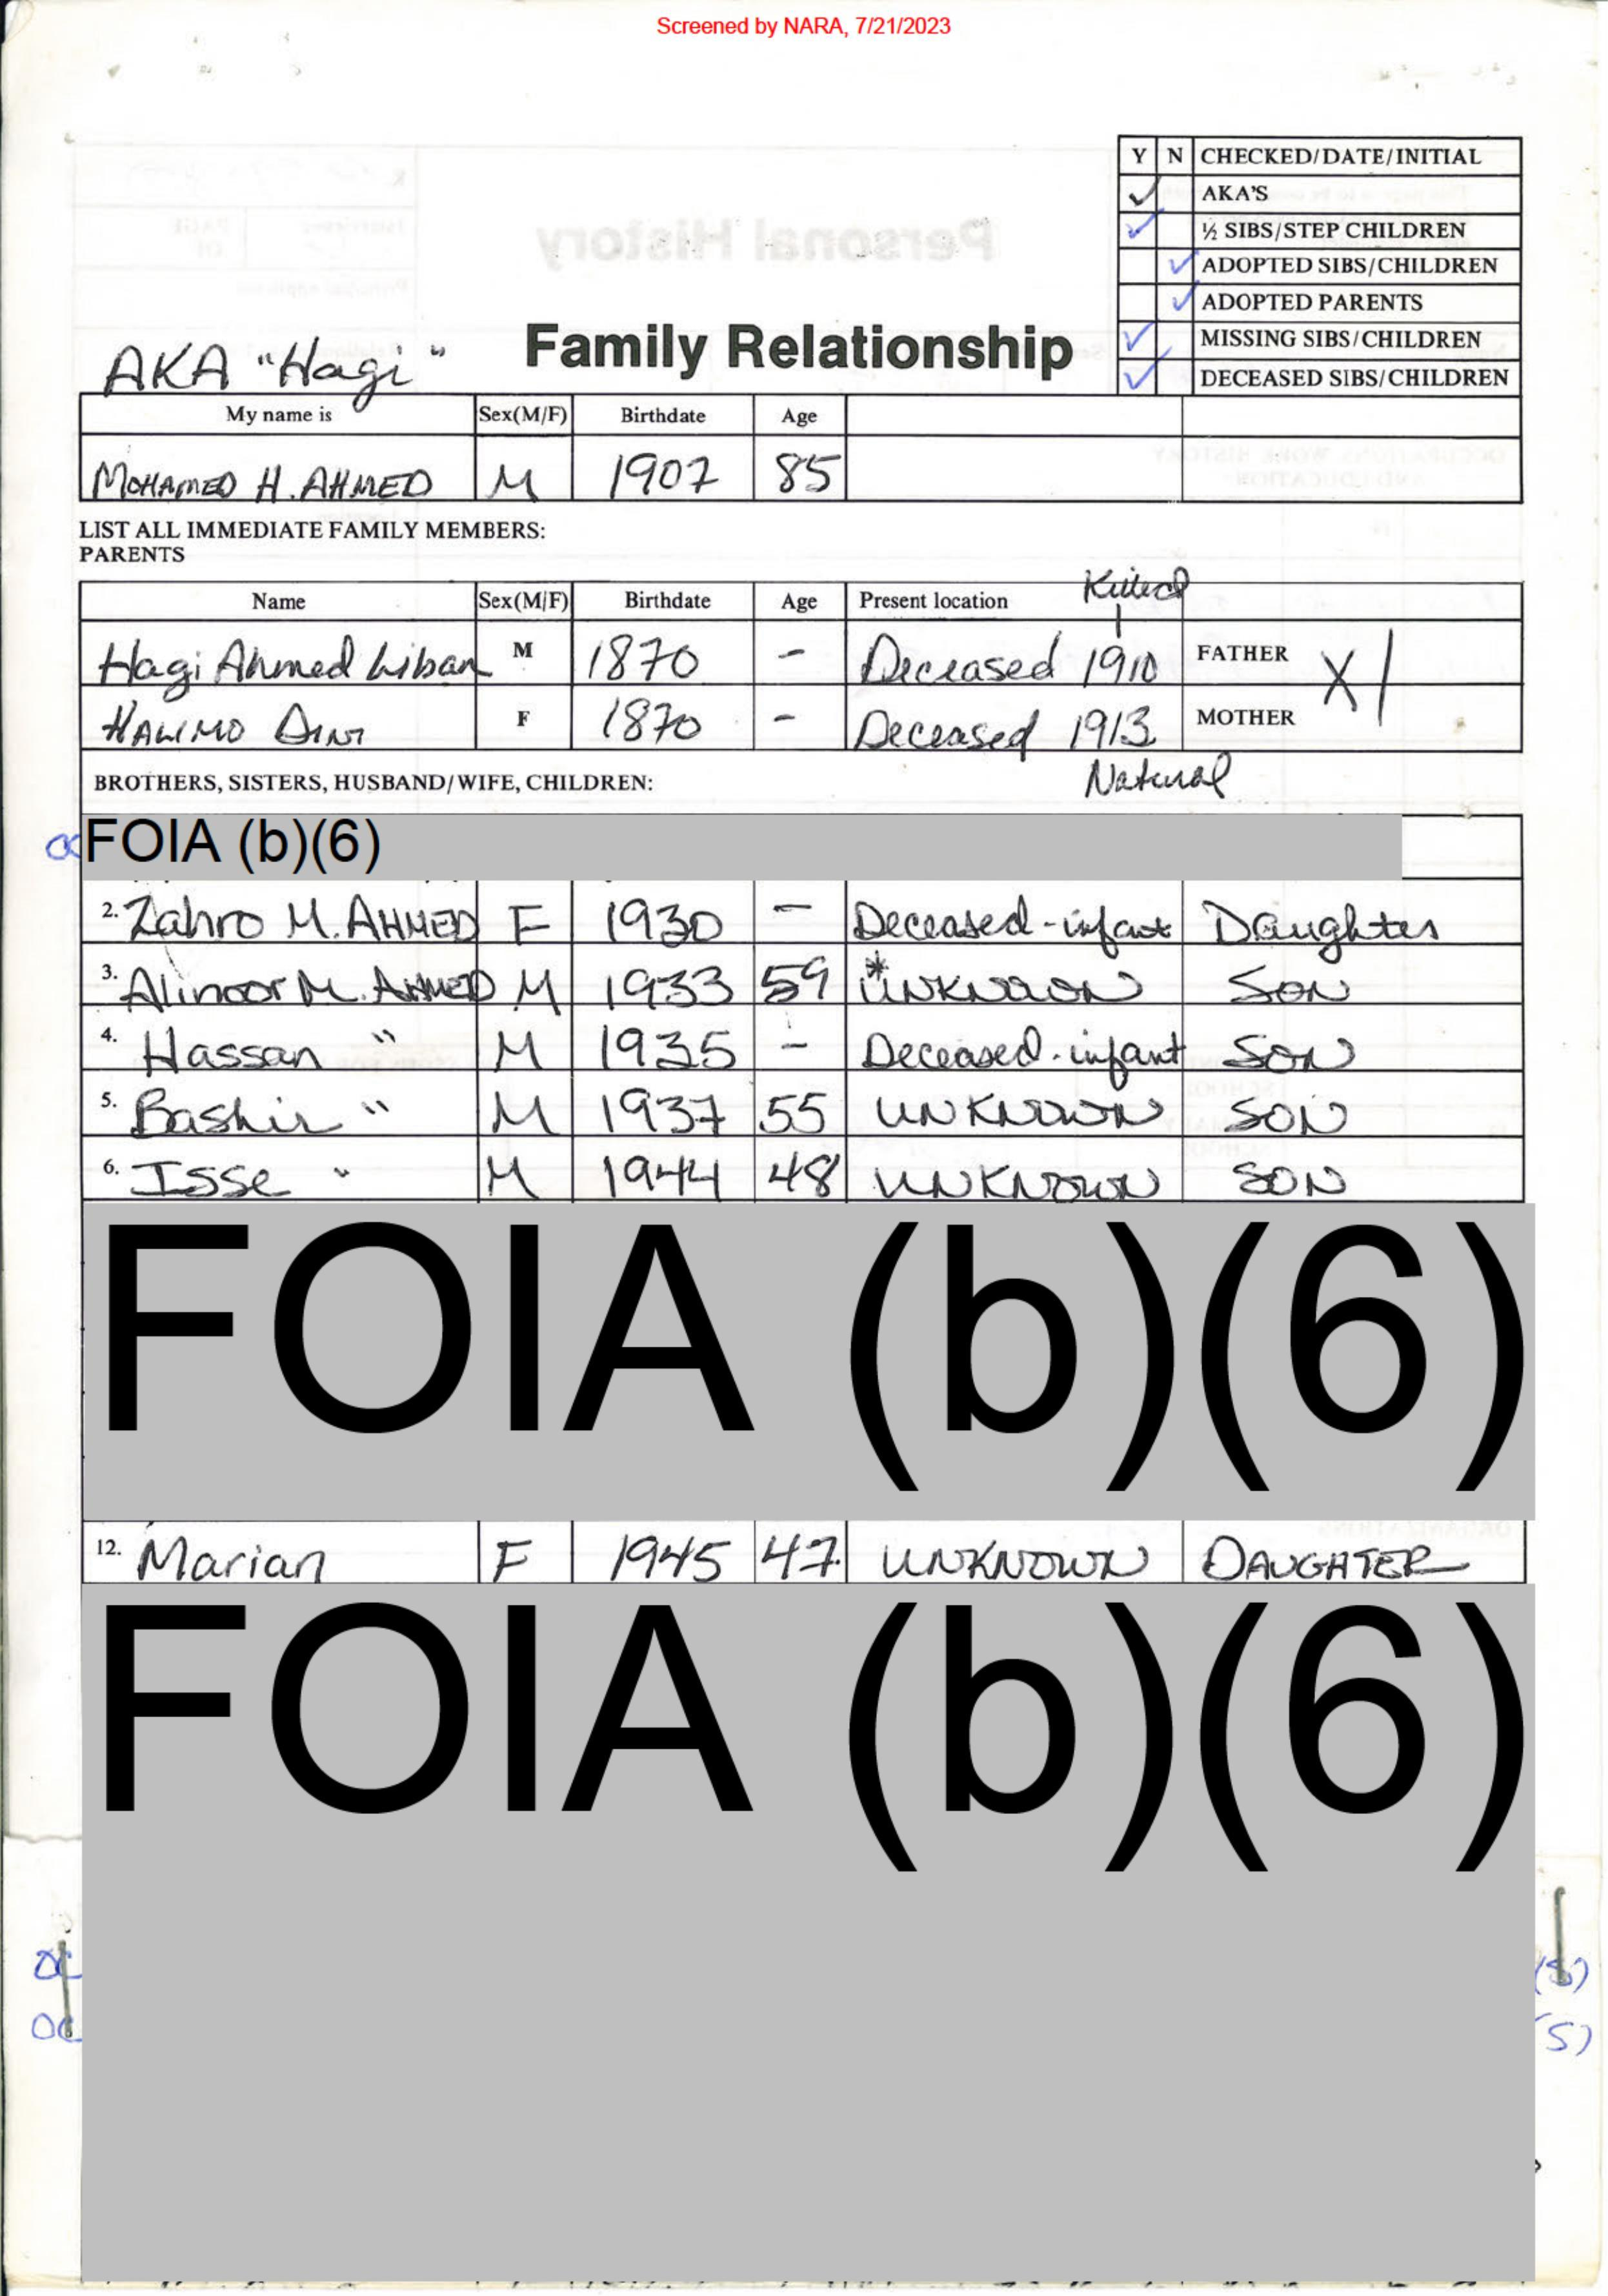 Screened by NARA, 7/21/2023
Y N CHECKED/DATE/INITIAL
✓ AKA'S
✓ ½ SIBS/STEP CHILDREN
✓ ADOPTED SIBS/CHILDREN
✓ ADOPTED PARENTS
✓ MISSING SIBS/CHILDREN
✓ DECEASED SIBS/CHILDREN
Personal History
AKA "Hagi"
Family Relationship
My name is Sex(M/F) Birthdate Age
MOHAMED H. AHMED M 1907 85
LIST ALL IMMEDIATE FAMILY MEMBERS:
PARENTS
Killed
Name Sex(M/F) Birthdate Age Present location
Hagi Ahmed Liban M 1870 - Deceased 1910 FATHER X
HALIMO DINI F 1870 - Deceased 1913 MOTHER
Natural
BROTHERS, SISTERS, HUSBAND/WIFE, CHILDREN:
FOIA (b)(6)
2. Zahro M. AHMED F 1930 - Deceased-infant Daughter
3. Alinoor M. AHMED M 1933 59 *UNKNOWN SON
4. Hassan " M 1935 - Deceased-infant SON
5. Bashir " M 1937 55 UNKNOWN SON
6. Isse " M 1944 48 UNKNOWN SON
FOIA (b)(6)
12. Marian F 1945 47 UNKNOWN DAUGHTER
FOIA (b)(6)
(S)
(S)